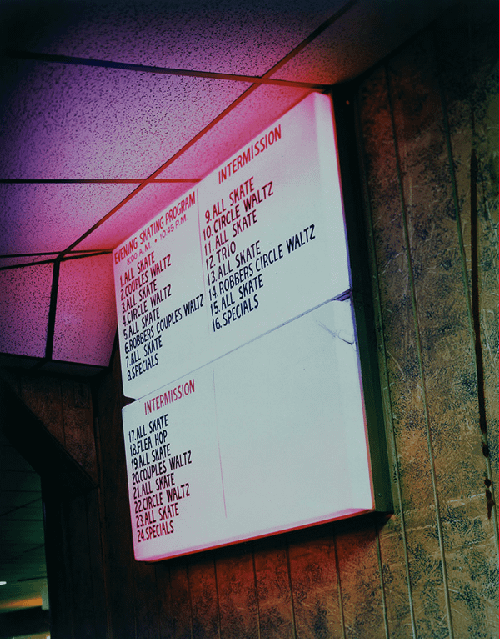 EVENING SKATING PROGRAM
1.ALL SKATE
2.COUPLES WALTZ
3.ALL SKATE
4.CIRCLE WALTZ
5.ALL SKATE
6.ROBBERS COUPLES WALTZ
7.ALL SKATE
8.SPECIALS
INTERMISSION
9.ALL SKATE
10.CIRCLE WALTZ
11.ALL SKATE
12.TRIO
13.ALL SKATE
14.ROBBERS CIRCLE WALTZ
15.ALL SKATE
16.SPECIALS
INTERMISSION
17.ALL SKATE
18.FLEA HOP
19.ALL SKATE
20.COUPLES WALTZ
21.ALL SKATE
22.CIRCLE WALTZ
23.ALL SKATE
24.SPECIALS